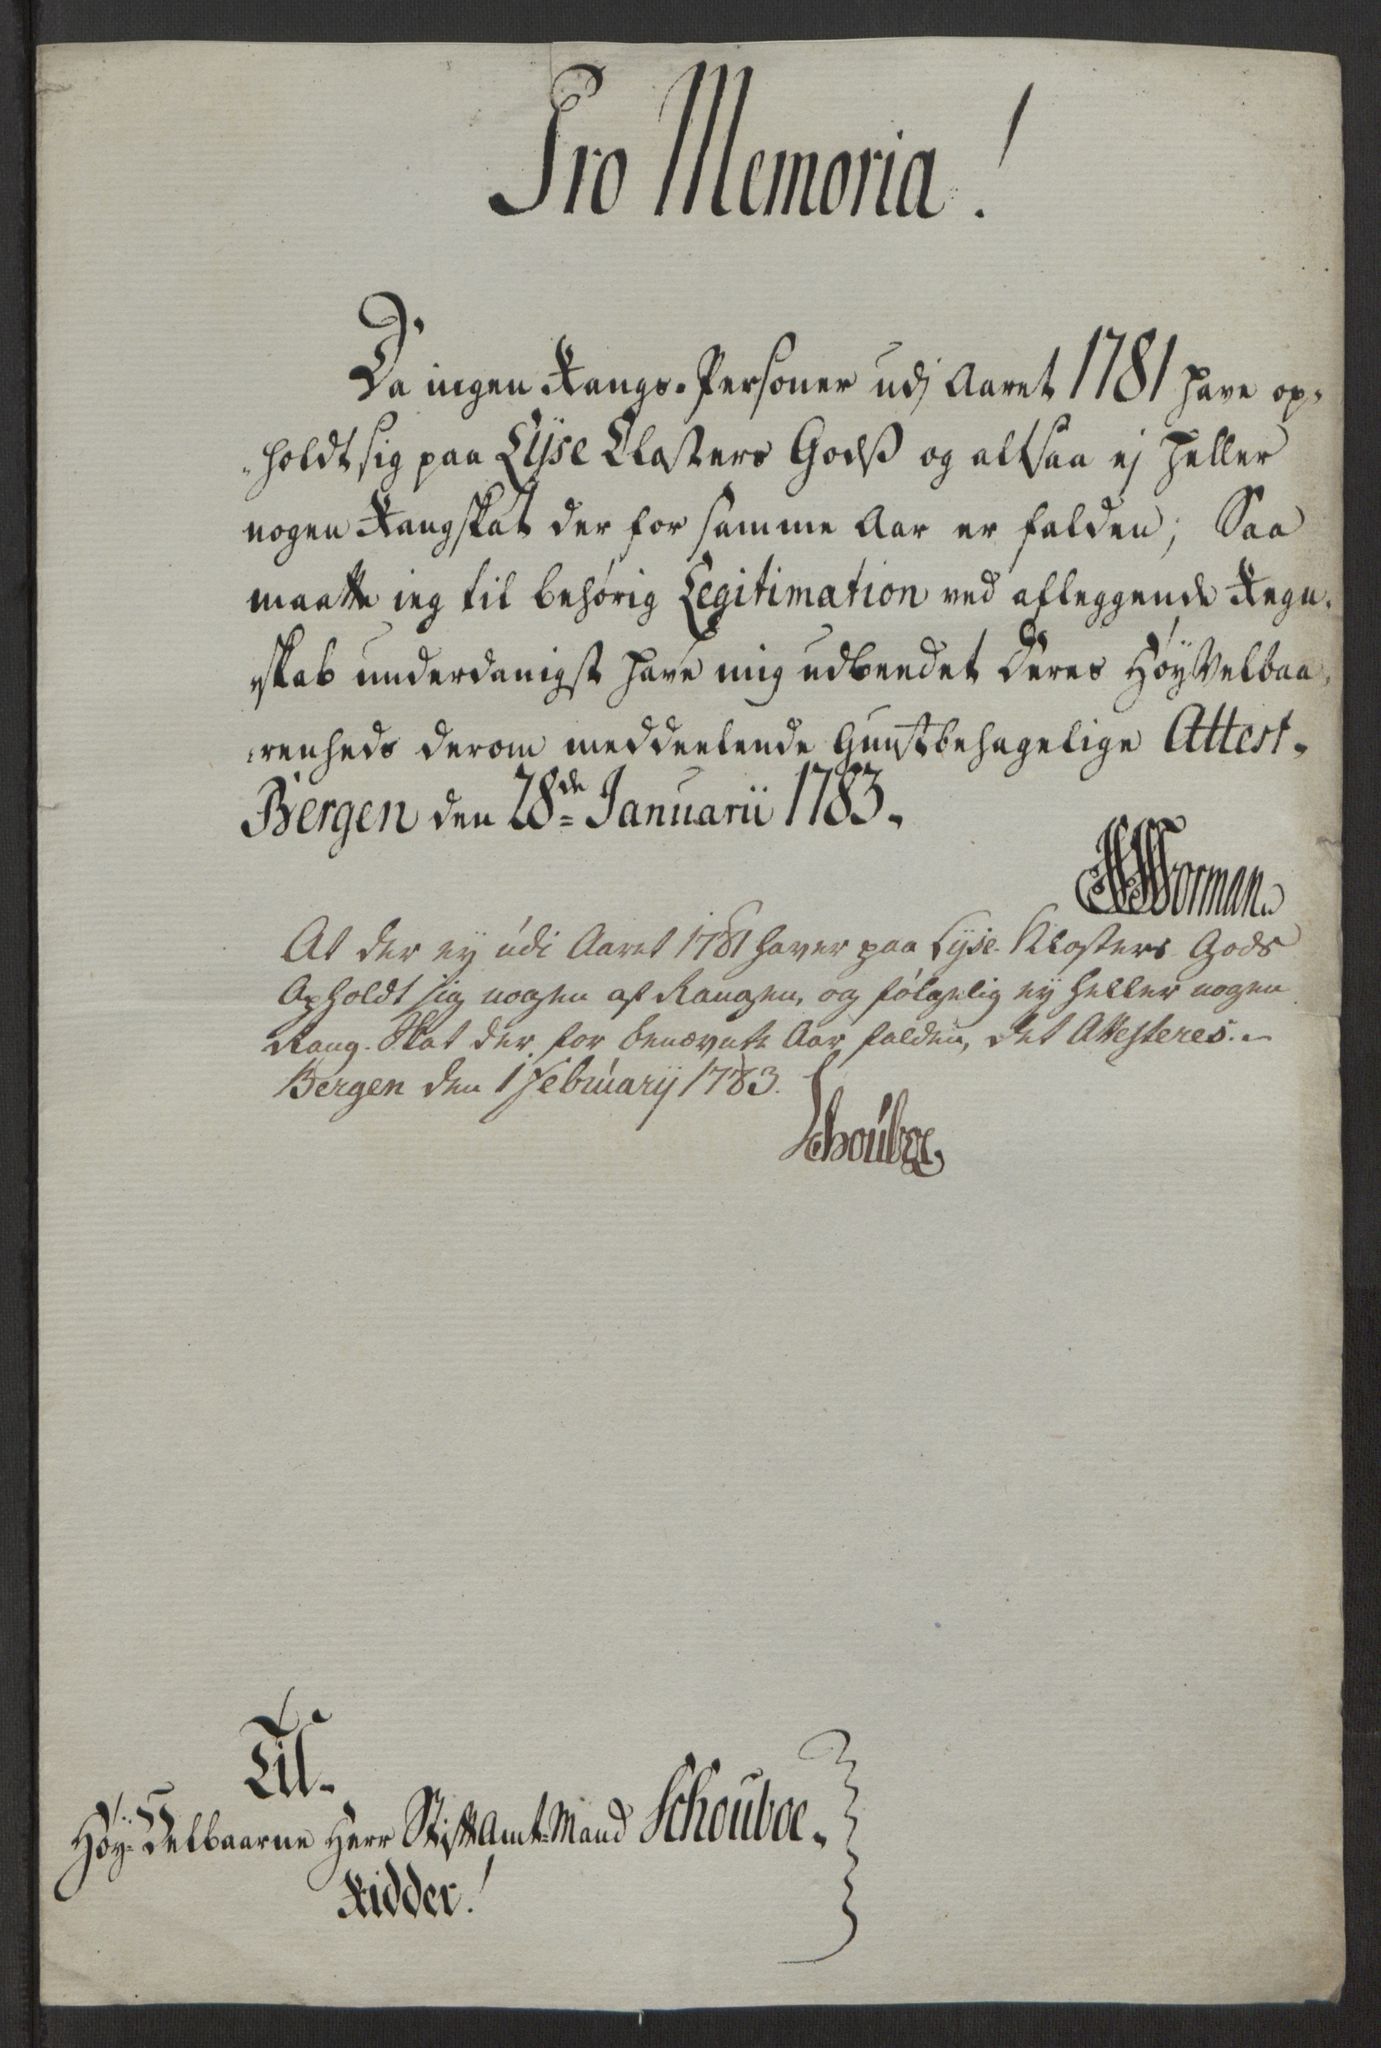 Pro Memoria!
Da ingen Rangs-Personer udj Aaret 1781 have op-
holdt sig paa Lÿse Closters Godß og altsaa ej heller
nogen Rangskat der for samme Aar er falden; Saa
maatte ieg til behørig Legitimation ved afleggende Regn-
skab underdanigst have mig udbeedet Deres HøyVelbaa-
renheds derom meddeelende Gunstbehagelige Attest.
Bergen den 28de Januarii 1783.
Worman
At der eÿ udi Aaret 1781 haver paa Lyse-Klosters Gods
Opholdt sig nogen af Rangen, og følgelig eÿ heller nogen
Rang-Skat der for benævnte Aar falden, det Attesteres.
Bergen den 1 Februarÿ 1783.
Schouboe
Til
Høy-Velbaarne Herr StiftAmt-Mand Schouboe.
Ridder!